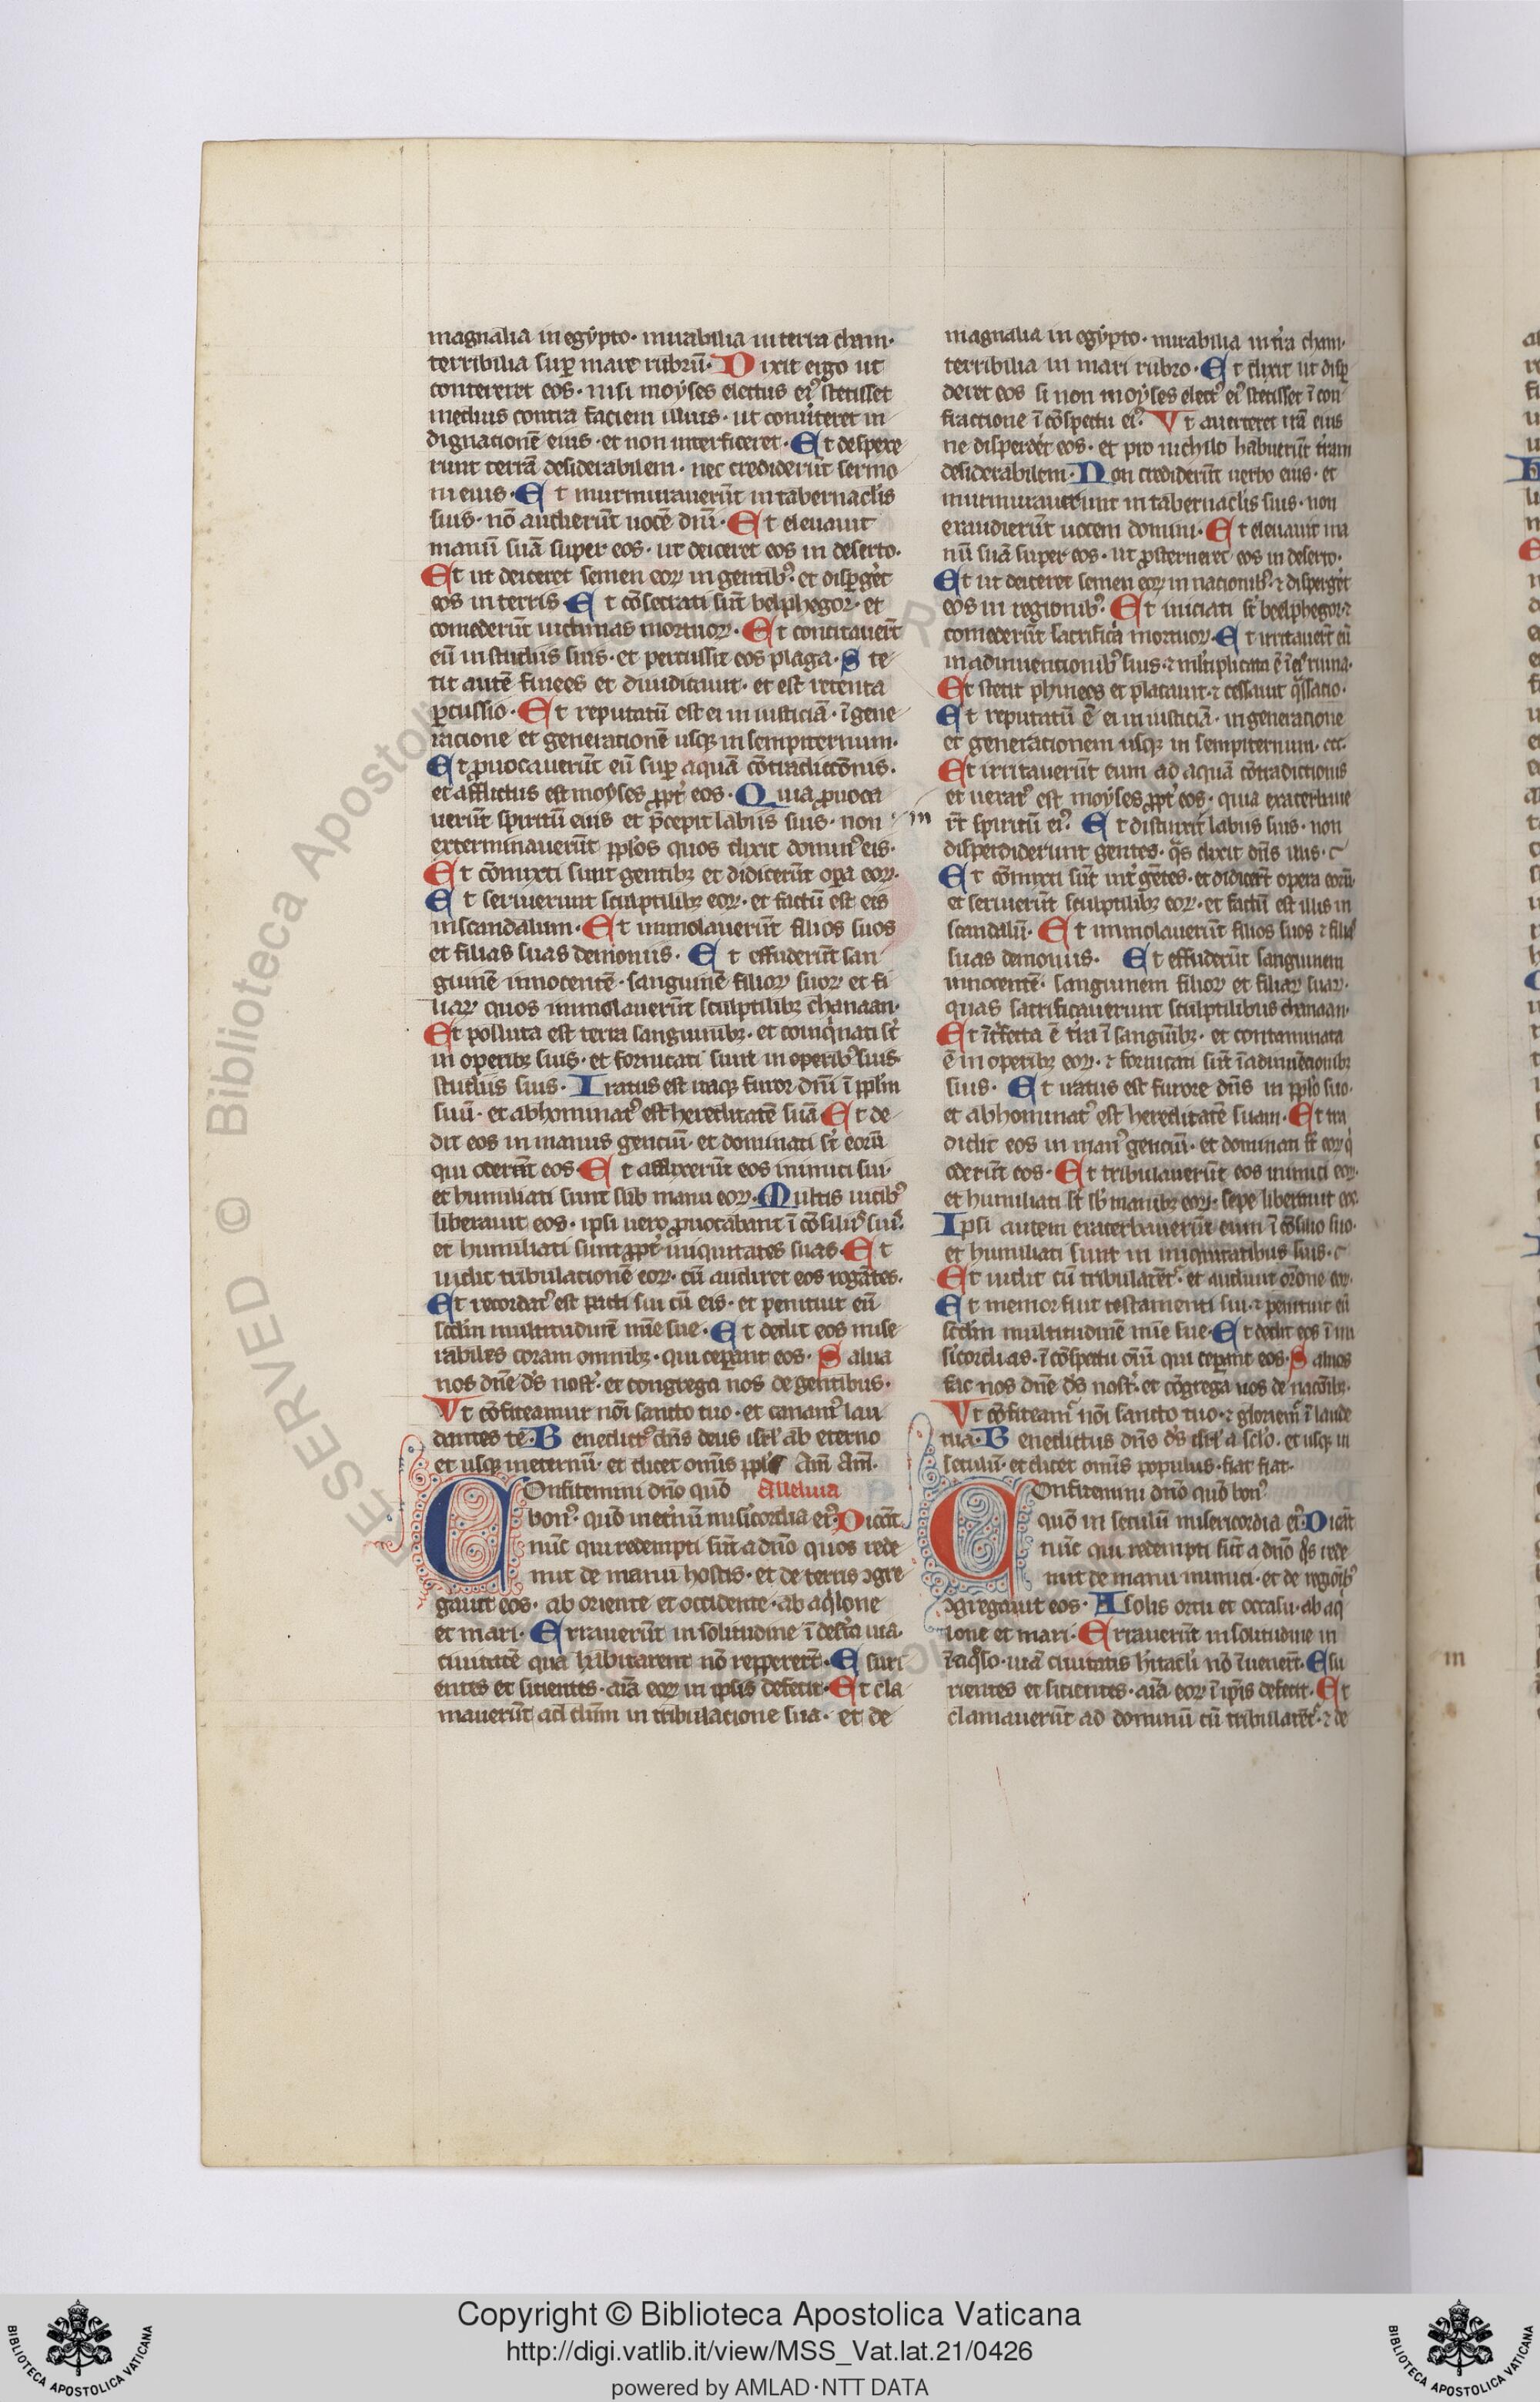 magnalia in egypto· mirabilia in terra cham·
terribilia suꝑ mare rubrū· Dixit ergo ut
contereret eos· nisi moyses electus eiꝰ stetisset
medius contra faciem illius· ut conūteret in
dignationē eius· et non interficeret· Et despexe
runt terrā desiderabilem· nec crediderūt sermo
ni eius· Et murmurauerūt in tabernaclis
suis· nō audierūt uocē dn̄i· Et eleuauit
manū suā super eos· ut deiceret eos in deserto·
Et ut deiceret semen eoꝝ in gentibꝰ· et disꝑgēt
eos in terris· Et cōsecrati sūt belphegor· et
comederūt uictimas mortuoꝝ· Et concitauerūt
eū in studiis suis· et percussit eos plaga· Ste
tit autē finees et diiudicauit· et est retenta
ꝑcussio· Et reputatū est ei in iusticiā· ī gene
racione et generationē usqꝫ in sempiternum·
Et ꝓuocauerūt eū suꝑ aquā cōtradictōnis·
et afflictus est moyses ꝓpt̓ eos· Quia ꝓuoca
uerūt spiritū eius et p̄cepit labiis suis· non
exterminauerūt ppl̓os quos dixit dominꝰ eis·
Et cōmixti sunt gentibꝫ et didicerūt oꝑa eoꝝ·
Et seruierunt sculptilibꝫ eoꝝ· et factū est eis
in scandalum· Et immolauerūt filios suos
et filias suas demoniis· Et effuderūt san
guinē innocentē· sanguinē filioꝝ suoꝝ et fi
liaꝝ quos immolauerūt sculptilibꝫ chanaan·
Et polluta est terra sanguinibꝫ· et coinq̓nati st̓
in operibꝫ suis· et fornicati sunt in operibꝰ suis
studiis suis· Iratus est itaqꝫ furor dn̄i ī ppl̓m
suū· et abhominatꝰ est hereditatē suā Et de
dit eos in manus genciū· et dominati st̓ eorū
qui oderāt eos· Et afflixerūt eos inimici sui·
et humiliati sunt sub manu eoꝝ· Multis uicibꝰ
liberauit eos· ipsi uero ꝓuocabant ī cōsiliꝰ suis·
et humiliati sunt ꝓpt̓ iniquitates suas· Et
uidit tribulacionē eoꝝ· cū audiret eos rogātes·
Et recordatꝰ est pacti sui cū eis· et penituit eū
scd̄m multitudinē mīe sue· Et dedit eos mise
rabiles coram omnibꝫ· qui ceꝑant eos· Salua
nos dn̄e ds̄ nost̓· et congrega nos de gentibus·
Vt cōfiteamur nōi sancto tuo· et canamꝰ lau
dantes te· Benedictꝰ dn̄s deus isrl̓ ab eterno
et usqꝫ in eternū· et dicet omīs ppl̓s Am̄ Am̄·
Confitemini dn̄o quō Alleluia
bonꝰ· quō in et̓nū misicordia eiꝰ· Dicāt
nūc qui redempti sūt a dn̄o quos rede
mit de manu hostis· et de terris ꝯgre
gauit eos· ab oriente et occidente· ab aq̓lone
et mari· Errauerūt in solitudine ī des̓ta uia·
ciuitatē qua habitarent nō reppererūt· Esuri
entes et sitientes· aīa eoꝝ in ipsis defecit· Et cla
mauerūt ad dn̄m in tribulacione sua· et de
magnalia in egypto· mirabilia in t̓ra cham·
terribilia in mari rubro· Et dixit ut disꝑ
deret eos si non moyses electꝰ eiꝰ stetisset ī con
fractione ī cōspectu eiꝰ· Vt auerteret irā eius
ne disperdēt eos· et pro nichilo habuerūt t̓ram
desiderabilem· Non crediderūt uerbo eius· et
murmurauerunt in tabernaclis suis· non
exaudierūt uocem domini· Et eleuauit ma
nū suā super eos· ut ꝓsterneret eos in deserto·
Et ut deiceret semen eoꝝ in nacionibꝰ· ⁊ dispergēt
eos in regionibꝰ· Et iniciati st̓ beelphegor· ⁊
comederūt sacrificia mortuoꝝ· Et irritauerūt eū
in adinuentionibꝰ suis· ⁊ ml̓tiplicata ē ī eis ruina·
Et stetit phinees et placauit· ⁊ cessauit q̓ssatio·
Et reputatū ē ei in iusticiā· in generatione
et generationem usqꝫ in sempiternum·
Et irritauerūt eum ad aquā cōtradictionis
et uexatꝰ est moyses ꝓpt̓ eos· quia exacerbaue
m
rūt spiritū eiꝰ· Et distinxit labiis suis· non
disperdiderunt gentes· q̓s dixit dn̄s illis·
Et cōmixti sūt int̓ gētes· et didicerūt opera eorū·
et seruierūt sculptilibꝫ eoꝝ· et factū est illis in
scandalū· Et immolauerūt filios suos ⁊ filias
suas demoniis· Et effuderūt sanguinem
innocentē· sanguinem filioꝝ et filiaꝝ suaꝝ·
quas sacrificauerunt sculptilibus chanaan·
Et īt̓fecta ē t̓ra ī sanguībꝫ· et contaminata
ē in operibꝫ eoꝝ· ⁊ fornicati sūt ī adinuēcionibꝫ
suis· Et iratus est furore dn̄s in ppl̓o suo·
et abhominatꝰ est hereditatē suam· Et tra
didit eos in manꝰ genciū· et dominati st̓ eoꝝ q̓
oderūt eos· Et tribulauerūt eos inimici eoꝝ·
et humiliati st̓ sb̓ manibꝫ eoꝝ· sepe liberauit eos·
Ipsi autem exacerbauerūt eum ī cōsilio suo·
et humiliati sunt in iniquitatibus suis·
Et uidit cū tribularēt᷑· et audiuit or̄one eoꝝ·
Et memor fuit testamenti sui· ⁊ penituit eū
scd̄m multitudinē mīe sue· Et dedit eos ī mi
sicordias· ī cōspectu oīū qui ceꝑant eos· Saluos
fac nos dn̄e ds̄ nost̓· et cōgrega nos de nacōibꝫ·
Vt cōfiteam᷑ nōi sancto tuo· ⁊ gloriem᷑ ī laude
tua· Benedictus dn̄s ds̄ isrl̓ a sclo· et usqꝫ in
seculū· et dicet omīs populus· fiat fiat·
Confitemini dn̄o quō bonꝰ
quō in seculū misericordia eiꝰ· Dicāt
nūc qui redempti sūt a dn̄o q̓s rede
mit de manu inimici· et de regiōibꝰ
ꝯgregauit eos· A solis ortu et occasu· ab aq
lone et mari· Errauerūt in solitudine in
īaq̓so· uiā ciuitatis hitacl̓i nō īuenerūt· Esu
rientes et sitientes· aīa eoꝝ ī ip̄is defecit· Et
clamauerūt ad dominū cū tribularēt᷑· ⁊ de
m
RESERVED © Biblioteca Apostolica
Copyright © Biblioteca Apostolica Vaticana
http://digi.vatlib.it/view/MSS_Vat.lat.21/0426
powered by AMLAD·NTT DATA
BIBLIOTECA APOSTOLICA VATICANA
BIBLIOTECA APOSTOLICA VATICANA